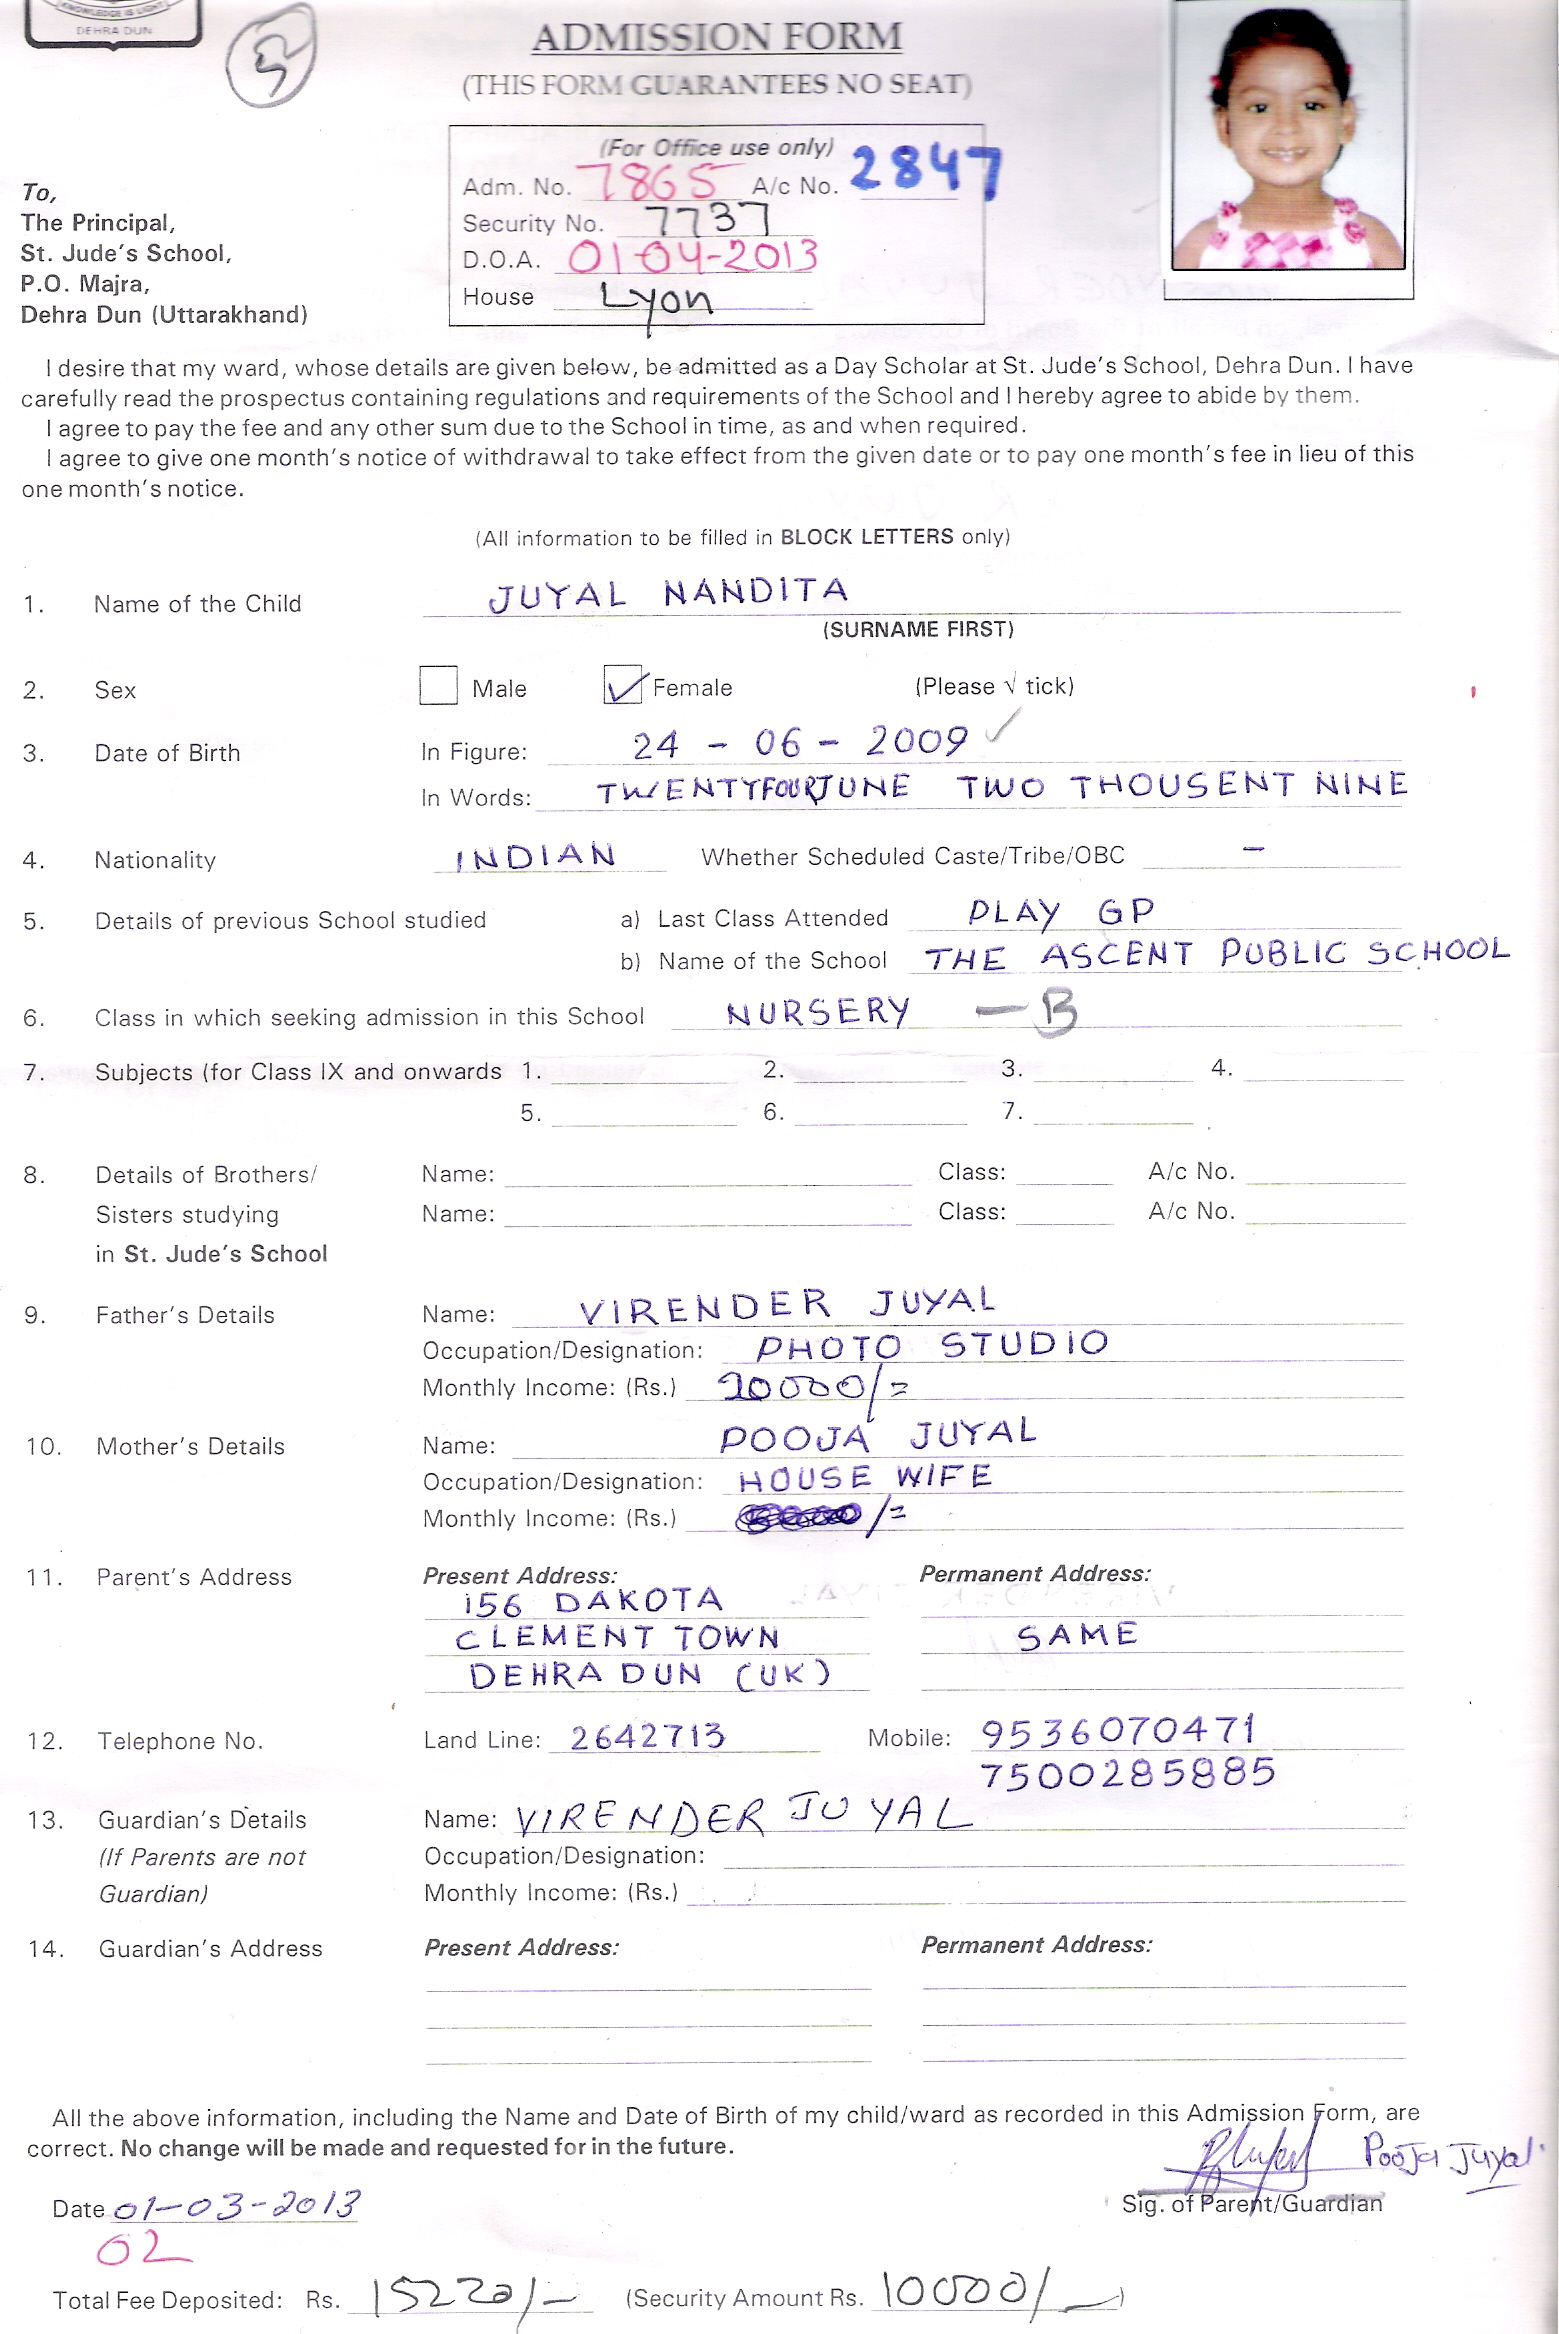 KNOWLEDGE IS LIGHT
DEHRA DUN
ADMISSION FORM
(THIS FORM GUARANTEES NO SEAT)
(For Office use only)
Adm. No. 7865 A/c No. 2847
Security No. 7737
D.O.A. 01-04-2013
House Lyon
To,
The Principal,
St. Jude's School,
P.O. Majra,
Dehra Dun (Uttarakhand)
I desire that my ward, whose details are given below, be admitted as a Day Scholar at St. Jude's School, Dehra Dun. I have
carefully read the prospectus containing regulations and requirements of the School and I hereby agree to abide by them.
I agree to pay the fee and any other sum due to the School in time, as and when required.
I agree to give one month's notice of withdrawal to take effect from the given date or to pay one month's fee in lieu of this
one month's notice.
(All information to be filled in BLOCK LETTERS only)
1. Name of the Child JUYAL NANDITA
(SURNAME FIRST)
2. Sex Male ✓ Female (Please √ tick)
3. Date of Birth In Figure: 24 - 06 - 2009 ✓
In Words: TWENTYFOURJUNE TWO THOUSENT NINE
4. Nationality INDIAN Whether Scheduled Caste/Tribe/OBC -
5. Details of previous School studied a) Last Class Attended PLAY GP
b) Name of the School THE ASCENT PUBLIC SCHOOL
6. Class in which seeking admission in this School NURSERY - B
7. Subjects (for Class IX and onwards 1. 2. 3. 4.
5. 6. 7.
8. Details of Brothers/ Name: Class: A/c No.
Sisters studying Name: Class: A/c No.
in St. Jude's School
9. Father's Details Name: VIRENDER JUYAL
Occupation/Designation: PHOTO STUDIO
Monthly Income: (Rs.) 20000/=
10. Mother's Details Name: POOJA JUYAL
Occupation/Designation: HOUSE WIFE
Monthly Income: (Rs.) /=
11. Parent's Address Present Address: Permanent Address:
156 DAKOTA
CLEMENT TOWN SAME
DEHRA DUN (UK)
12. Telephone No. Land Line: 2642713 Mobile: 9536070471
7500285885
13. Guardian's Details Name: VIRENDER JUYAL
(If Parents are not Occupation/Designation:
Guardian) Monthly Income: (Rs.)
14. Guardian's Address Present Address: Permanent Address:
All the above information, including the Name and Date of Birth of my child/ward as recorded in this Admission Form, are
correct. No change will be made and requested for in the future.
Pooja Juyal
Date 01-03-2013 Sig. of Parent/Guardian
02
Total Fee Deposited: Rs. 15220/- (Security Amount Rs. 10000/-)